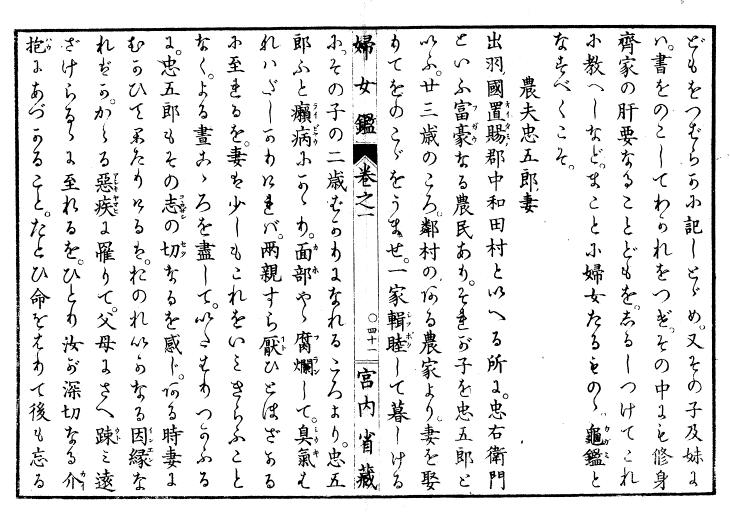 どもをつばらかに記しとゞめ。又その子及妹に
ハ。書をのこしてわかれをつぎ。その中にも修身
齊家の肝要なることどもを。しるしつけてこれ
に教へしなど。まことに婦女たるものゝ。龜鑑と
なすべくこそ。
農夫忠五郎妻
出羽國置賜郡中和田村と以へる所に。忠右衛門
といふ富豪なる農民あり。そをが子を忠五郎と
いふ。廿三歳のころ。鄰村のある農家より。妻を娶
りてをのこゞをうませ。一家輯睦して暮しける
婦女鑑 卷之一 ○四十一 宮内省藏
に。その子の二歳ばかりになれるころより。忠五
郎ふと癩病にかゝり。面部やゝ腐爛して。臭氣も
れいだしかりければ。两親すら厭ひとほざかる
に至れるを。妻は少しもこれをいみきらふこと
なく。よる晝こゝろを盡して。いたはりつかふる
に。忠五郎もその志の切なるを感じ。ある時妻に
むかひて 。おのれいかなる因縁な
ればか。かゝる惡疾に罹りて。父母にさへ踈み遠
ざけらるゝに至れるを。ひとり汝が深切なる介
抱にあづかること。たとひ命をはりて後も忘る